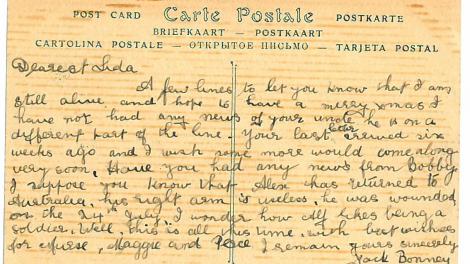 POST CARD Carte Postale POSTKARTE
BRIEFKAART — POSTKAART
CARTOLINA POSTALE — ОТКРЫТОЕ ПИСЬМО — TARJETA POSTAL
Dearest Lida
A few lines to let you know that I am
still alive, and hope to have a merry xmas I
have not had any news of your uncle he is on a
different part of the line. Your last letter arrived six
weeks ago and I wish some more would come along
very soon, Have you had any news from Bobby.
I suppose you know that Alex has returned to
Australia, his right arm is useless, he was wounded
on the 24th July, I wonder how Alf likes being a
soldier. Well, this is all this time, with best wishes
for nurse, Maggie and I remain yours sincerely
Jack Bonney